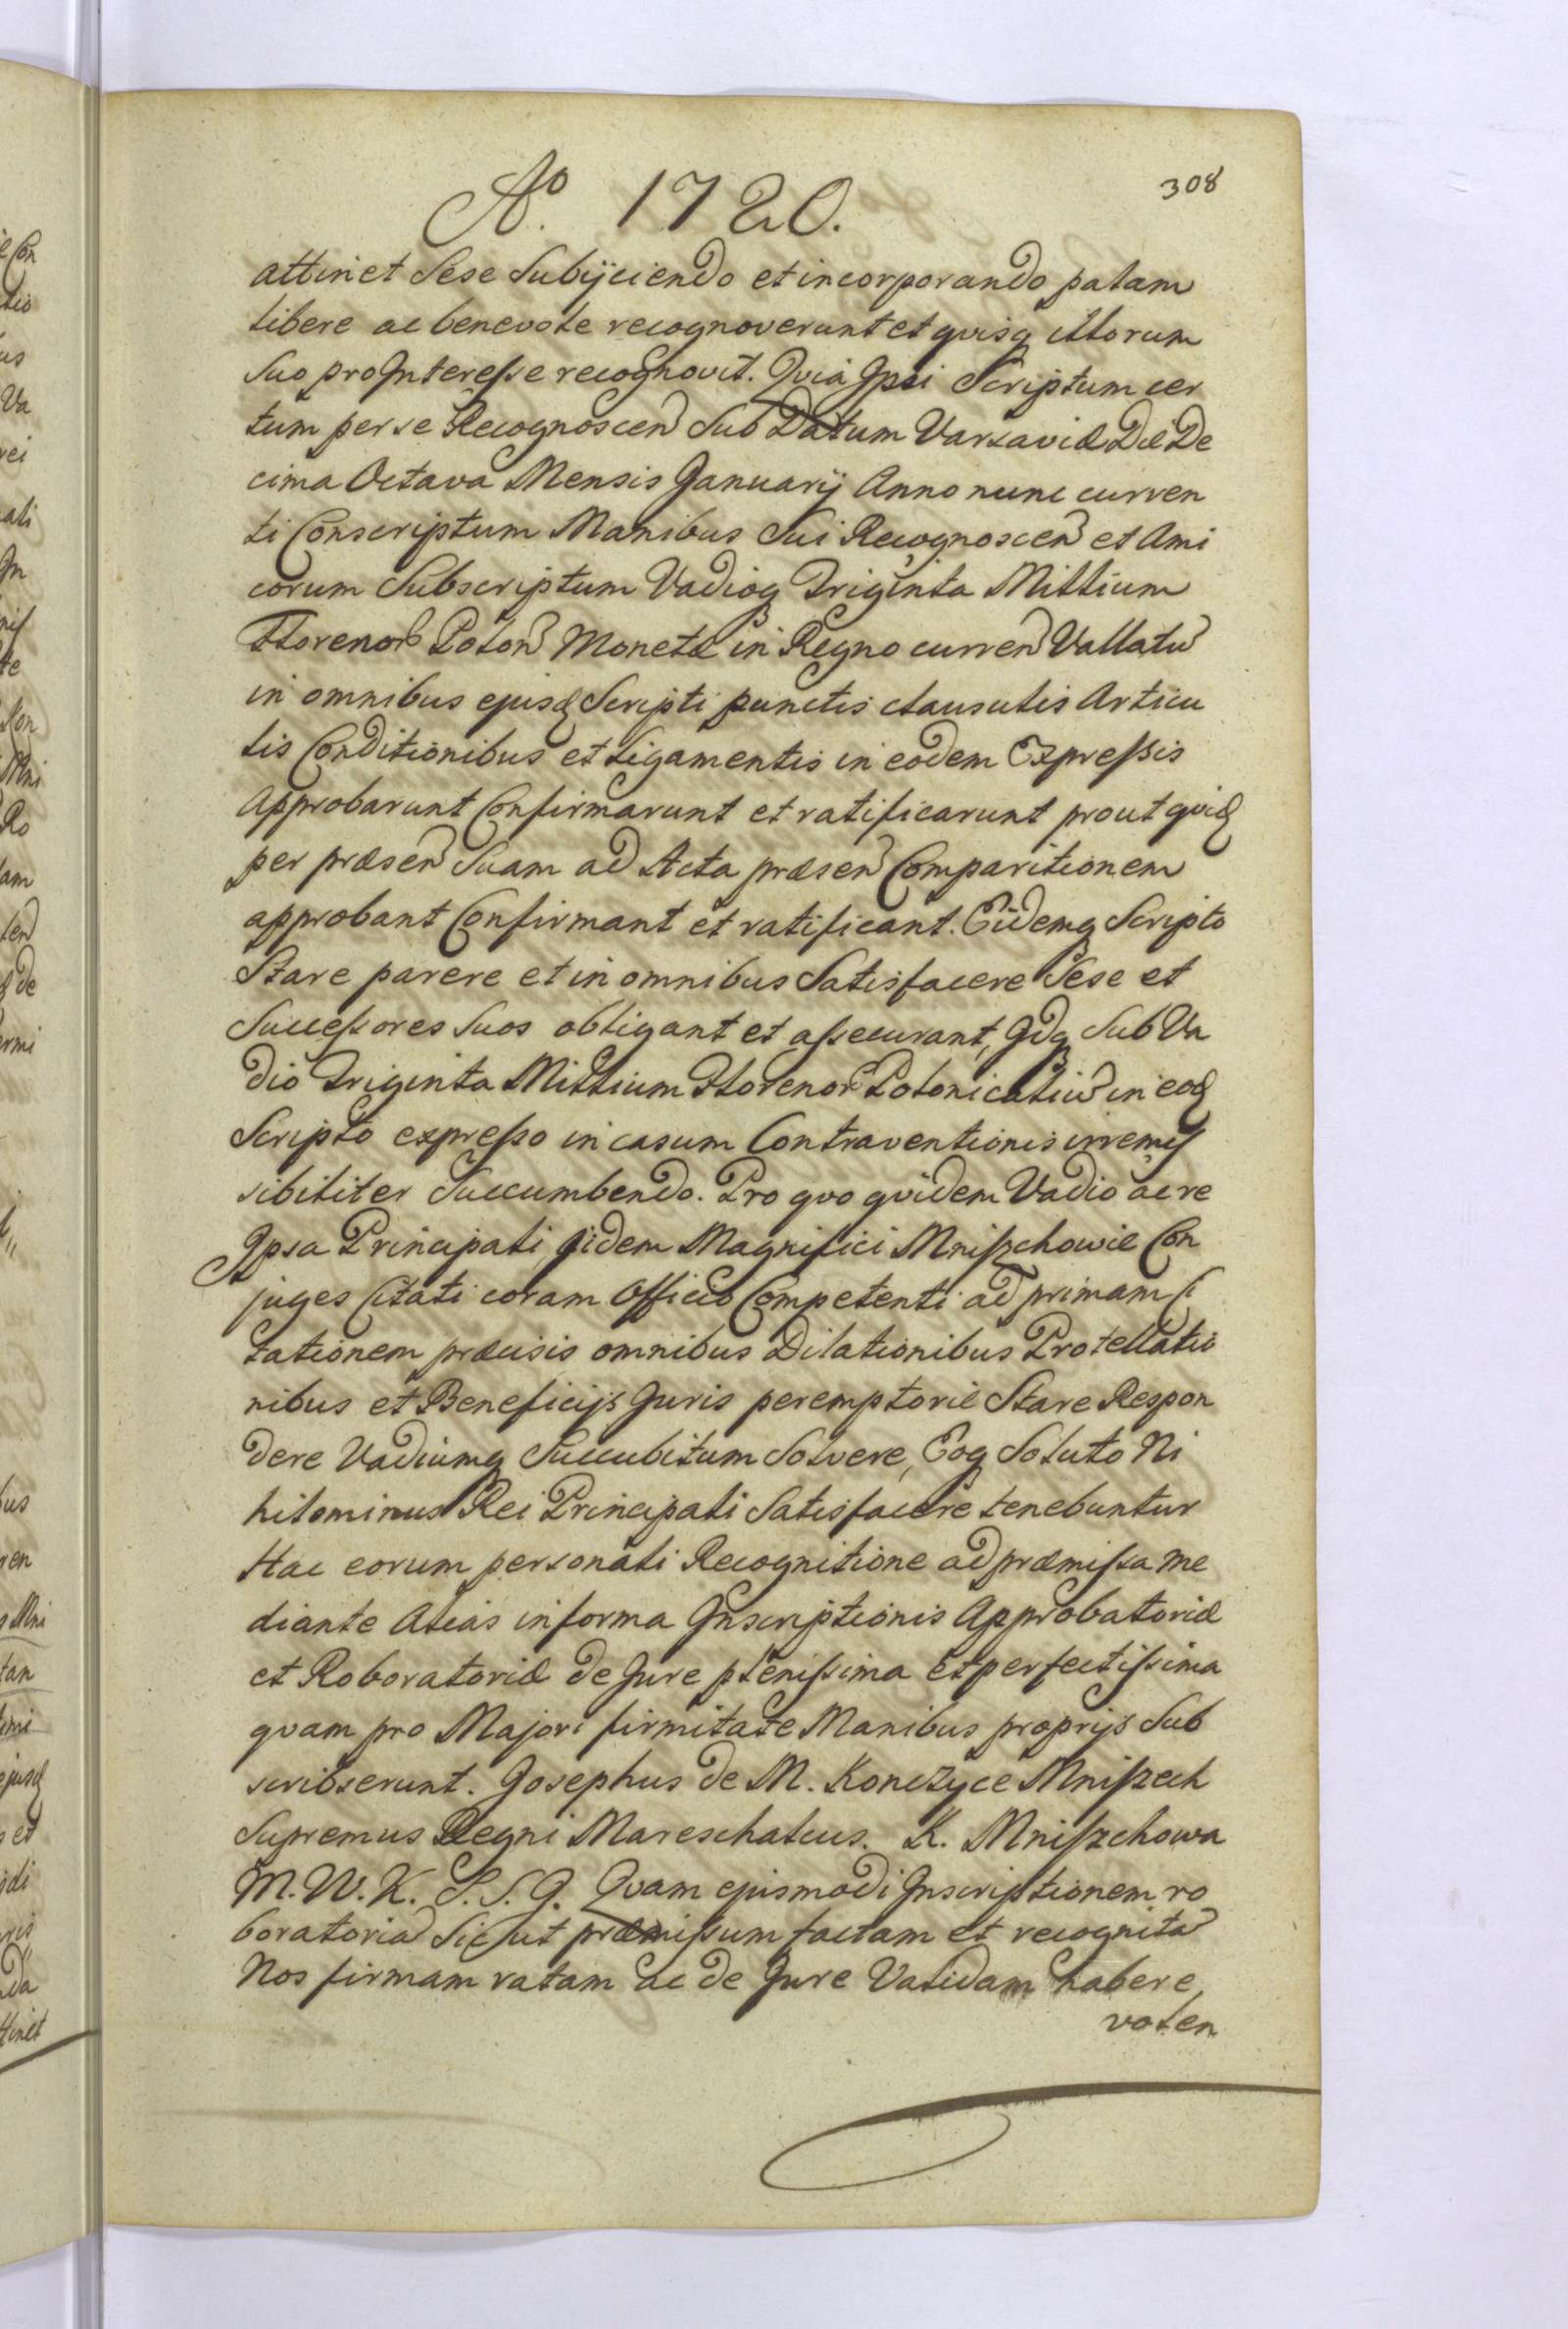 Ao. 1720.
308
attinet Sese Subijciendo et incorporando palam
libere ac benevole recognoverunt et qvisq illorum
Suo pro Interesse recognovit. Qvia Ipsi Scriptum cer
tum per se Recognoscen Sub Datum Varsaviæ Die De
cima Octava Mensis Januarij Anno nunc curren
ti Conscriptum Manibus Sui Recognoscen et Ami
corum Subscriptum Vadioq Triginta Millium
Florenor Polon Monetæ in Regno curren Vallatu
in omnibus ejusd Scripti punctis clausulis Articu
lis Conditionibus et Ligamentis in eodem Expressis
Approbarunt Confirmarunt et ratificarunt prout qvid
per præsen Suam ad Acta præsen Comparitionem
approbant Confirmant et ratificant. Eidemq Scripto
Stare parere et in omnibus Satisfacere Sese et
Successores Suos obligant et assecurant, Idq Sub Va
dio Triginta Millium Florenor Polonicaliu in eod
Scripto expresso in casum Contraventionis irremis
sibiliter Succumbendo. Pro qvo qvidem Vadio ac re
Ipsa Principali Iidem Magnifici Mniszchowie Con
juges Citati coram Officio Competenti ad primam Ci
tationem præcisis omnibus Dilationibus Protellatio
nibus et Beneficijs Juris peremptorie Stare Respon
dere Vadiumq Succubitum Solvere, Eoq Soluto Ni
hilominus Rei Principali Satisfacere tenebuntur
Hac eorum personali Recognitione ad præmissa me
diante Alias in forma Inscriptionis Approbatoriæ
et Roboratoriæ de Jure plenissima et perfectissima
qvam pro Majori firmitate Manibus proprijs Sub
scribserunt. Josephus de M. Konczyce Mniszech
Supremus Regni Mareschalcus. K. Mniszchowa
M. W. K. S. S. G. Qvam ejusmodi Inscriptionem ro
boratoria Sic ut præmissum factam et recognita
Nos firmam ratam ac de Jure Validam habere
volen